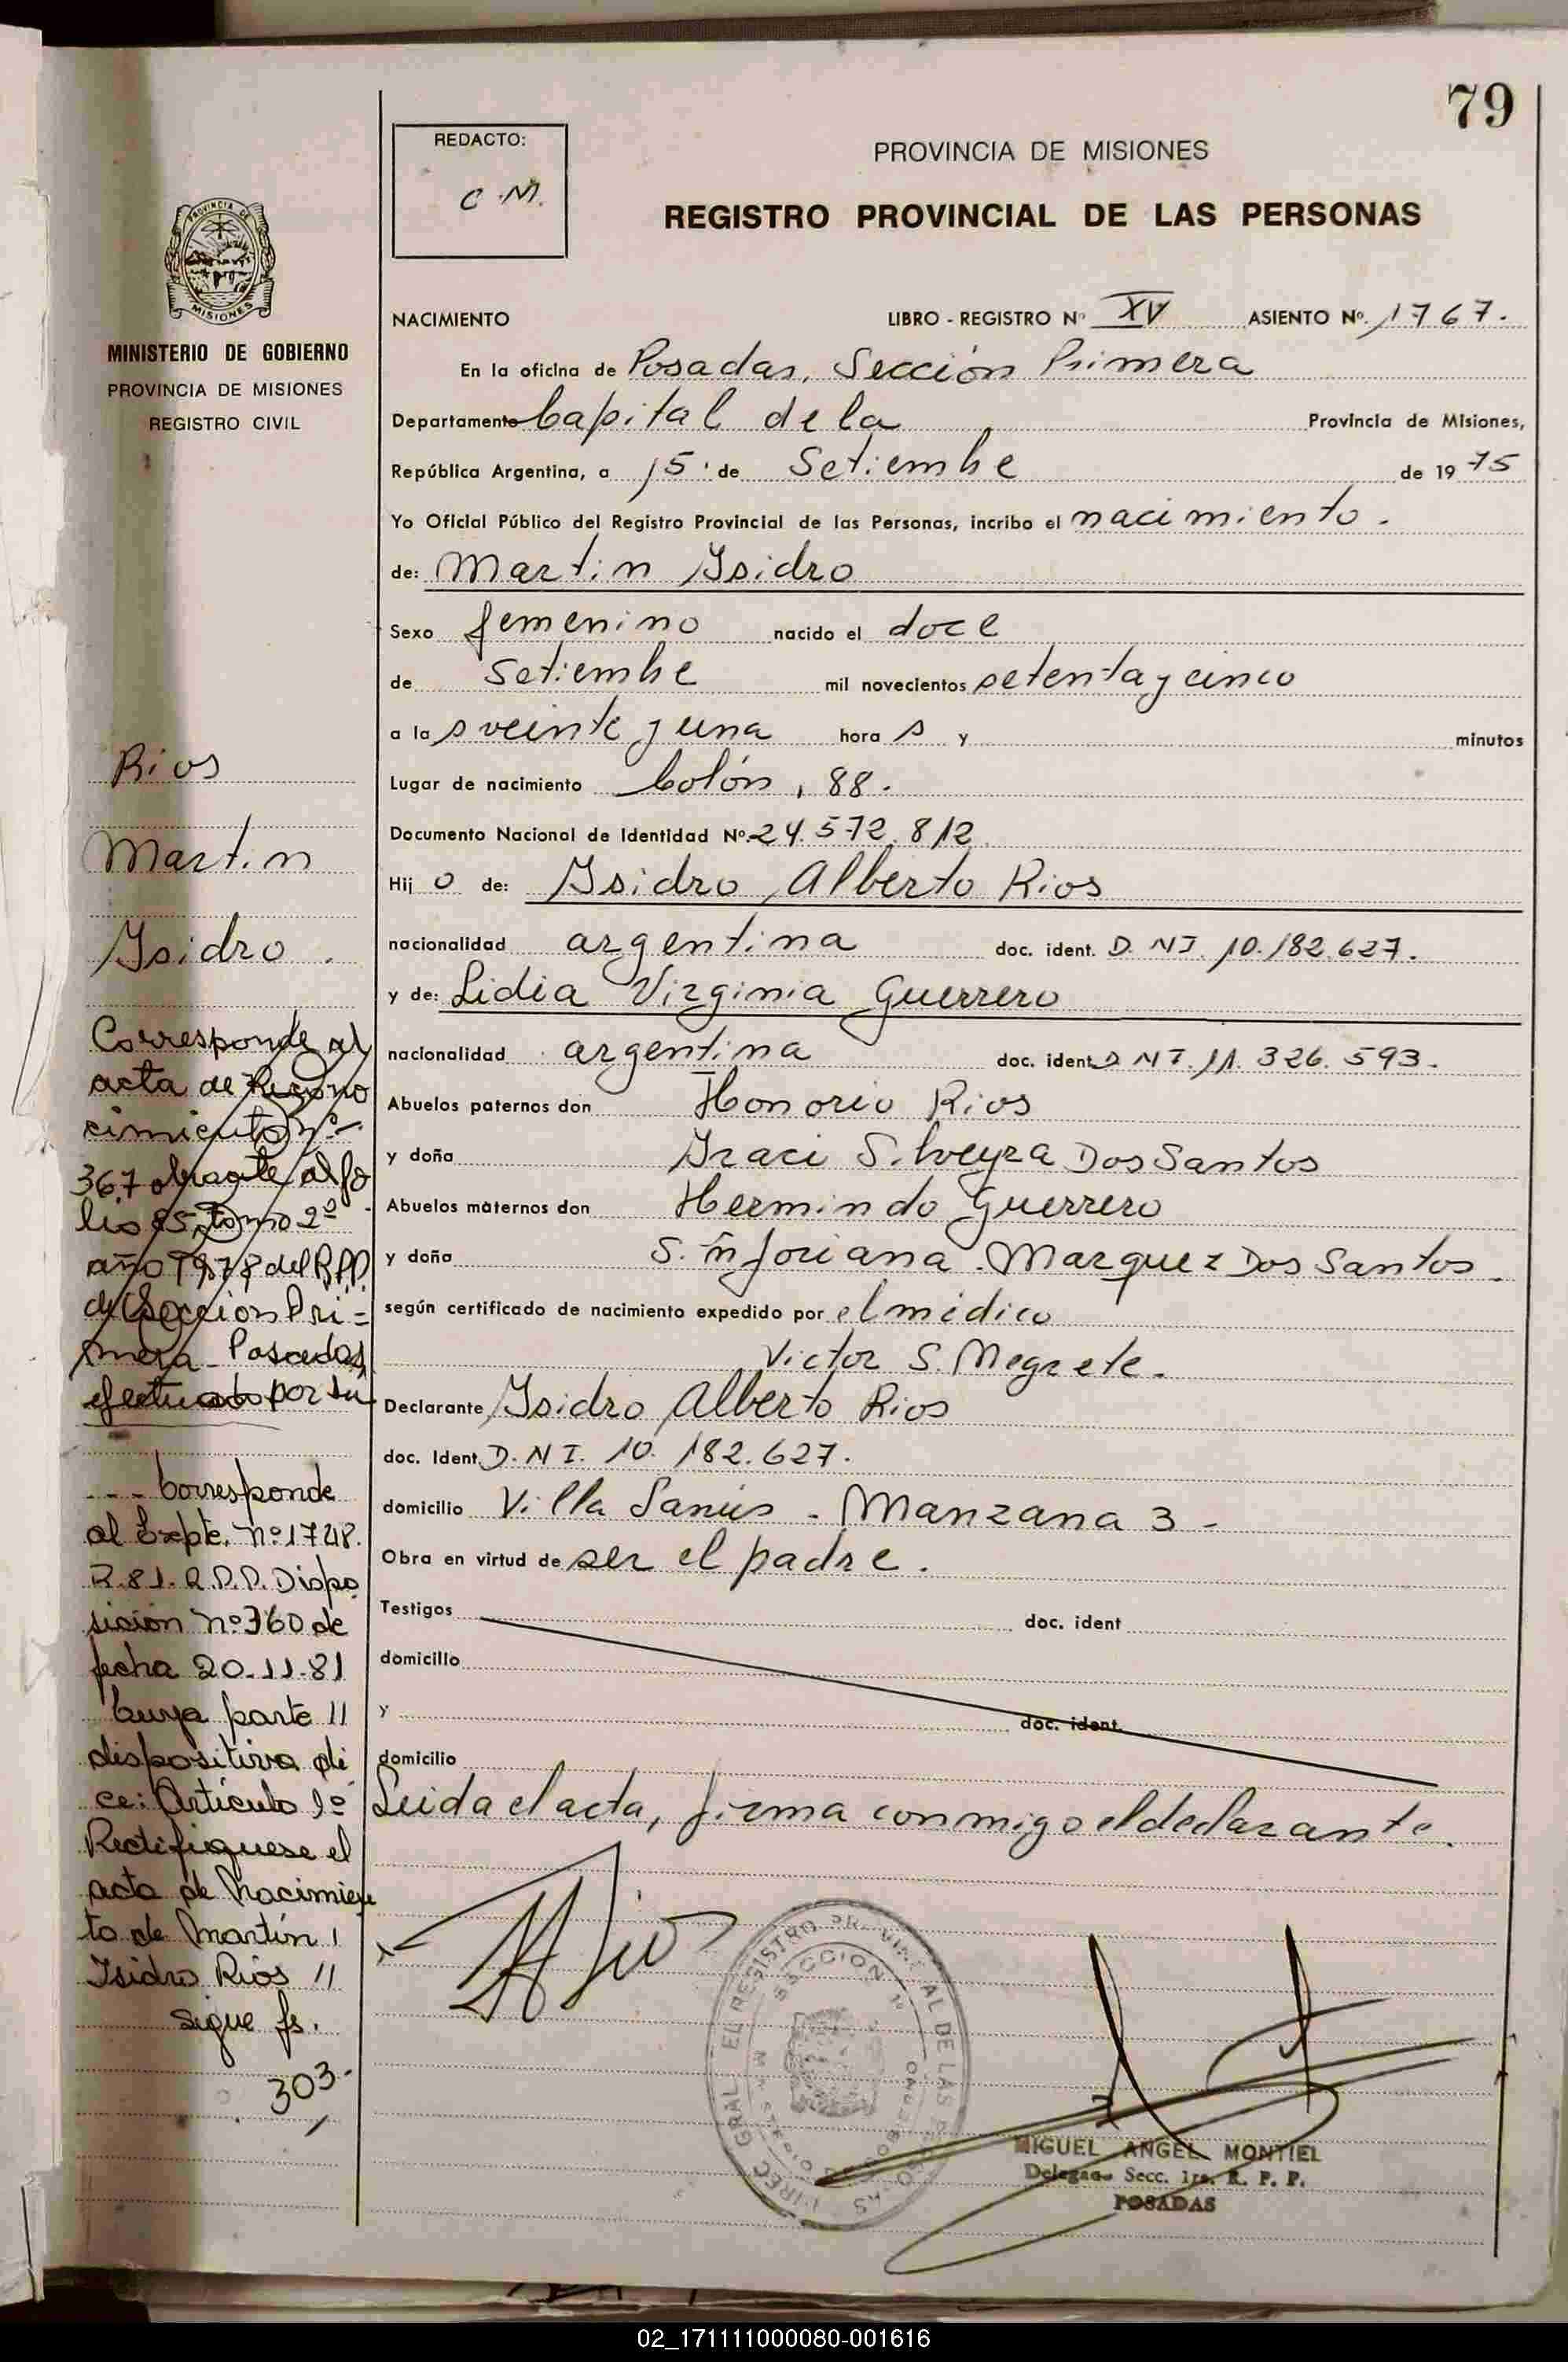 79
REDACTO:
C.M.
PROVINCIA DE MISIONES
REGISTRO PROVINCIAL DE LAS PERSONAS
PROVINCIA DE
MISIONES
MINISTERIO DE GOBIERNO
PROVINCIA DE MISIONES
REGISTRO CIVIL
NACIMIENTO LIBRO - REGISTRO Nº XV ASIENTO Nº. 1767.
En la oficina de Posadas, Sección Primera
Departamento Capital de la Provincia de Misiones,
República Argentina, a 15 de Setiembre de 1975
Yo Oficial Público del Registro Provincial de las Personas, incribo el nacimiento.
de: Martin Isidro
Sexo femenino nacido el doce
de Setiembre mil novecientos setenta y cinco
a la s veinte y una hora s y minutos
Lugar de nacimiento Colón, 88.
Documento Nacional de Identidad Nº. 24.572.812
Hij o de: Isidro Alberto Rios
nacionalidad argentina doc. ident. D.NI. 10.182.627.
y de: Lidia Virginia Guerrero
nacionalidad argentina doc. ident. D NI. 11.326.593.
Abuelos paternos don Honorio Rios
y doña Iraci Silveyra Dos Santos
Abuelos maternos don Hermindo Guerrero
y doña Sinforiana Marquez Dos Santos.
según certificado de nacimiento expedido por el médico
Victor S. Negrete.
Declarante Isidro Alberto Rios
doc. Ident. D.NI. 10.182.627.
domicilio Villa Sanús - Manzana 3 -
Obra en virtud de ser el padre.
Testigos doc. ident
domicilio
y doc. ident.
domicilio
Leida el acta, firma conmigo el declarante.
Rios
Martin
Isidro.
Corresponde al
acta de Recono
cimiento nº
367 obrante al fo
lio 85, tomo 2º
año 1978 del R.P.P.
de Seccion Pri=
mera - Posadas
efectuado por su
--- Corresponde
al Expte. Nº 1748.
R.81. R.P.P. Dispo
sición Nº 360 de
fecha 20-11-81
Cuya parte //
dispositiva di
ce: Artículo 1º
Rectifiquese el
acta de Nacimien
to de Martín
Isidro Rios //
sigue fs.
303-
SECCION 1ª
MIGUEL ANGEL MONTIEL
Delegado Secc. 1ra. R. P. P.
POSADAS
02_171111000080-001616